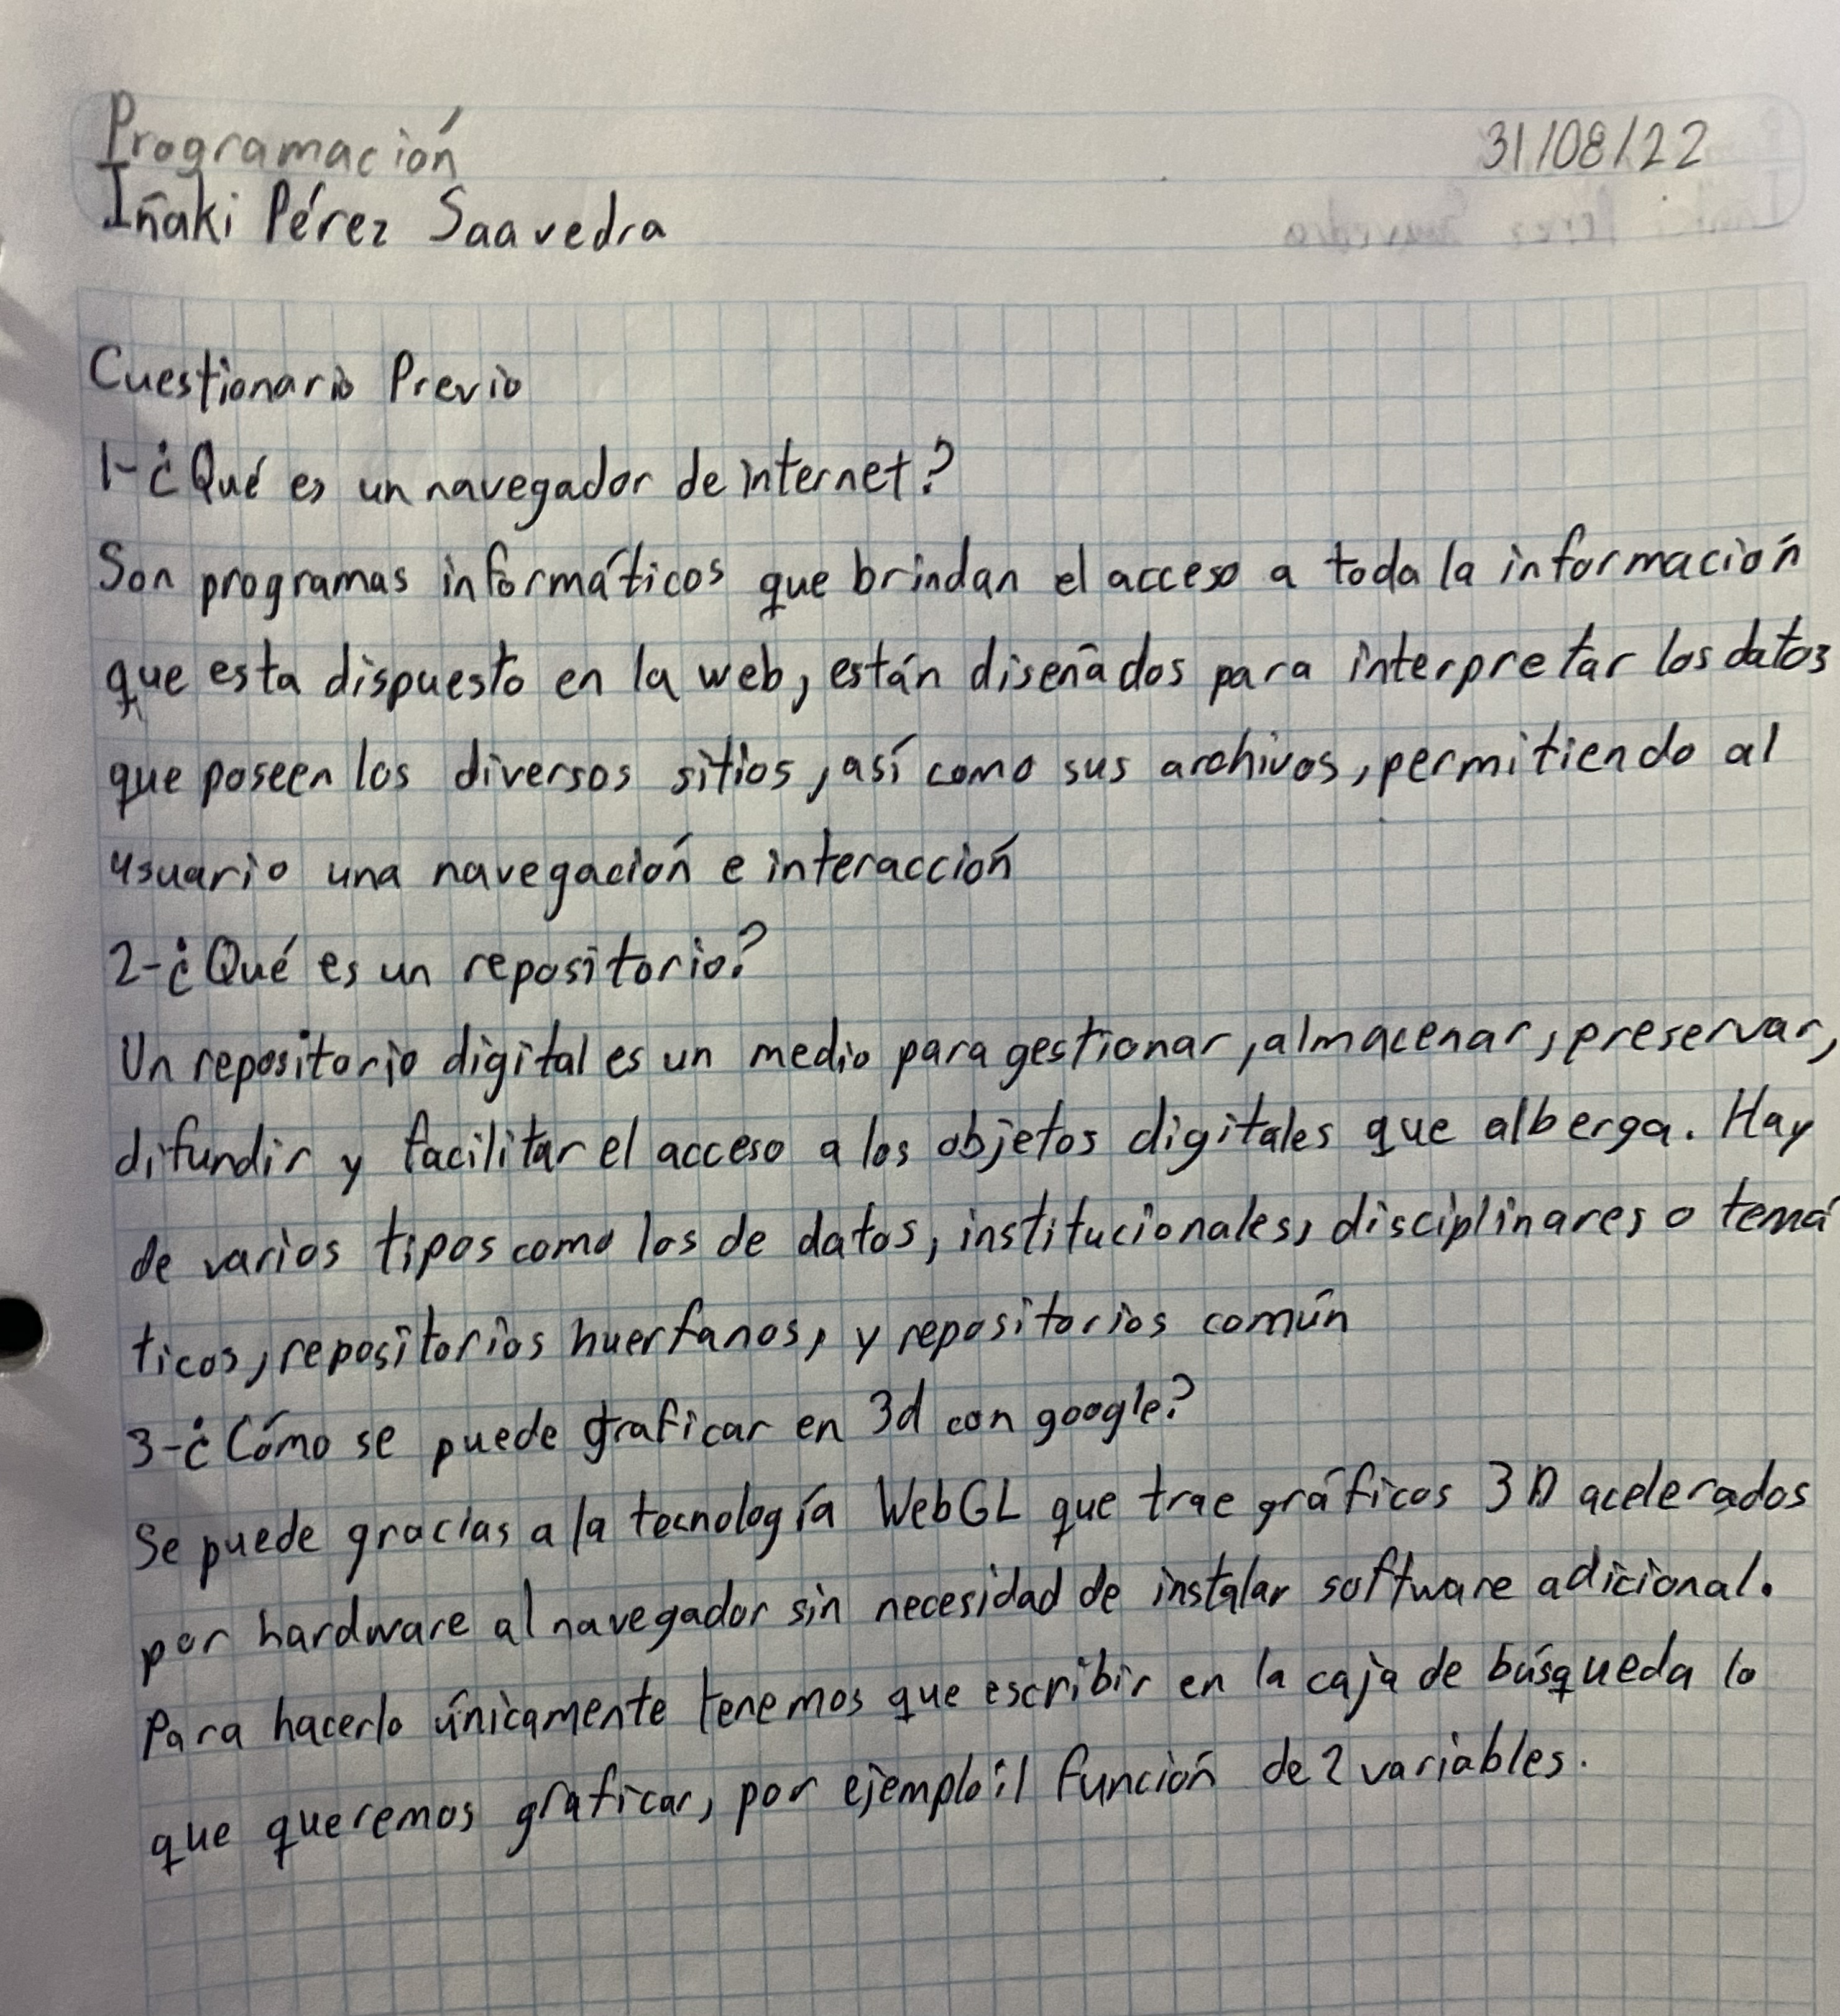 Programación 31/08/22
Iñaki Pérez Saavedra
Cuestionario Previo
1-¿Qué es un navegador de internet?
Son programas informáticos que brindan el acceso a toda la información
que esta dispuesto en la web, están diseñados para interpretar los datos
que poseen los diversos sitios, así como sus archivos, permitiendo al
usuario una navegación e interacción
2-¿Qué es un repositorio?
Un repositorio digital es un medio para gestionar, almacenar, preservar,
difundir y facilitar el acceso a los objetos digitales que alberga. Hay
de varios tipos como los de datos, institucionales, disciplinares o temá
ticos, repositorios huerfanos, y repositorios común
3-¿Cómo se puede graficar en 3d con google?
Se puede gracias a la tecnología WebGL que trae gráficos 3D acelerados
por hardware al navegador sin necesidad de instalar software adicional.
Para hacerlo únicamente tenemos que escribir en la caja de búsqueda lo
que queremos graficar, por ejemplo: función de 2 variables.